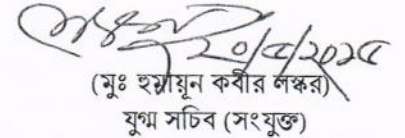 ২০/৫/২০২৫
(মুঃ হুমায়ূন কবীর লস্কর)
যুগ্ম সচিব (সংযুক্ত)